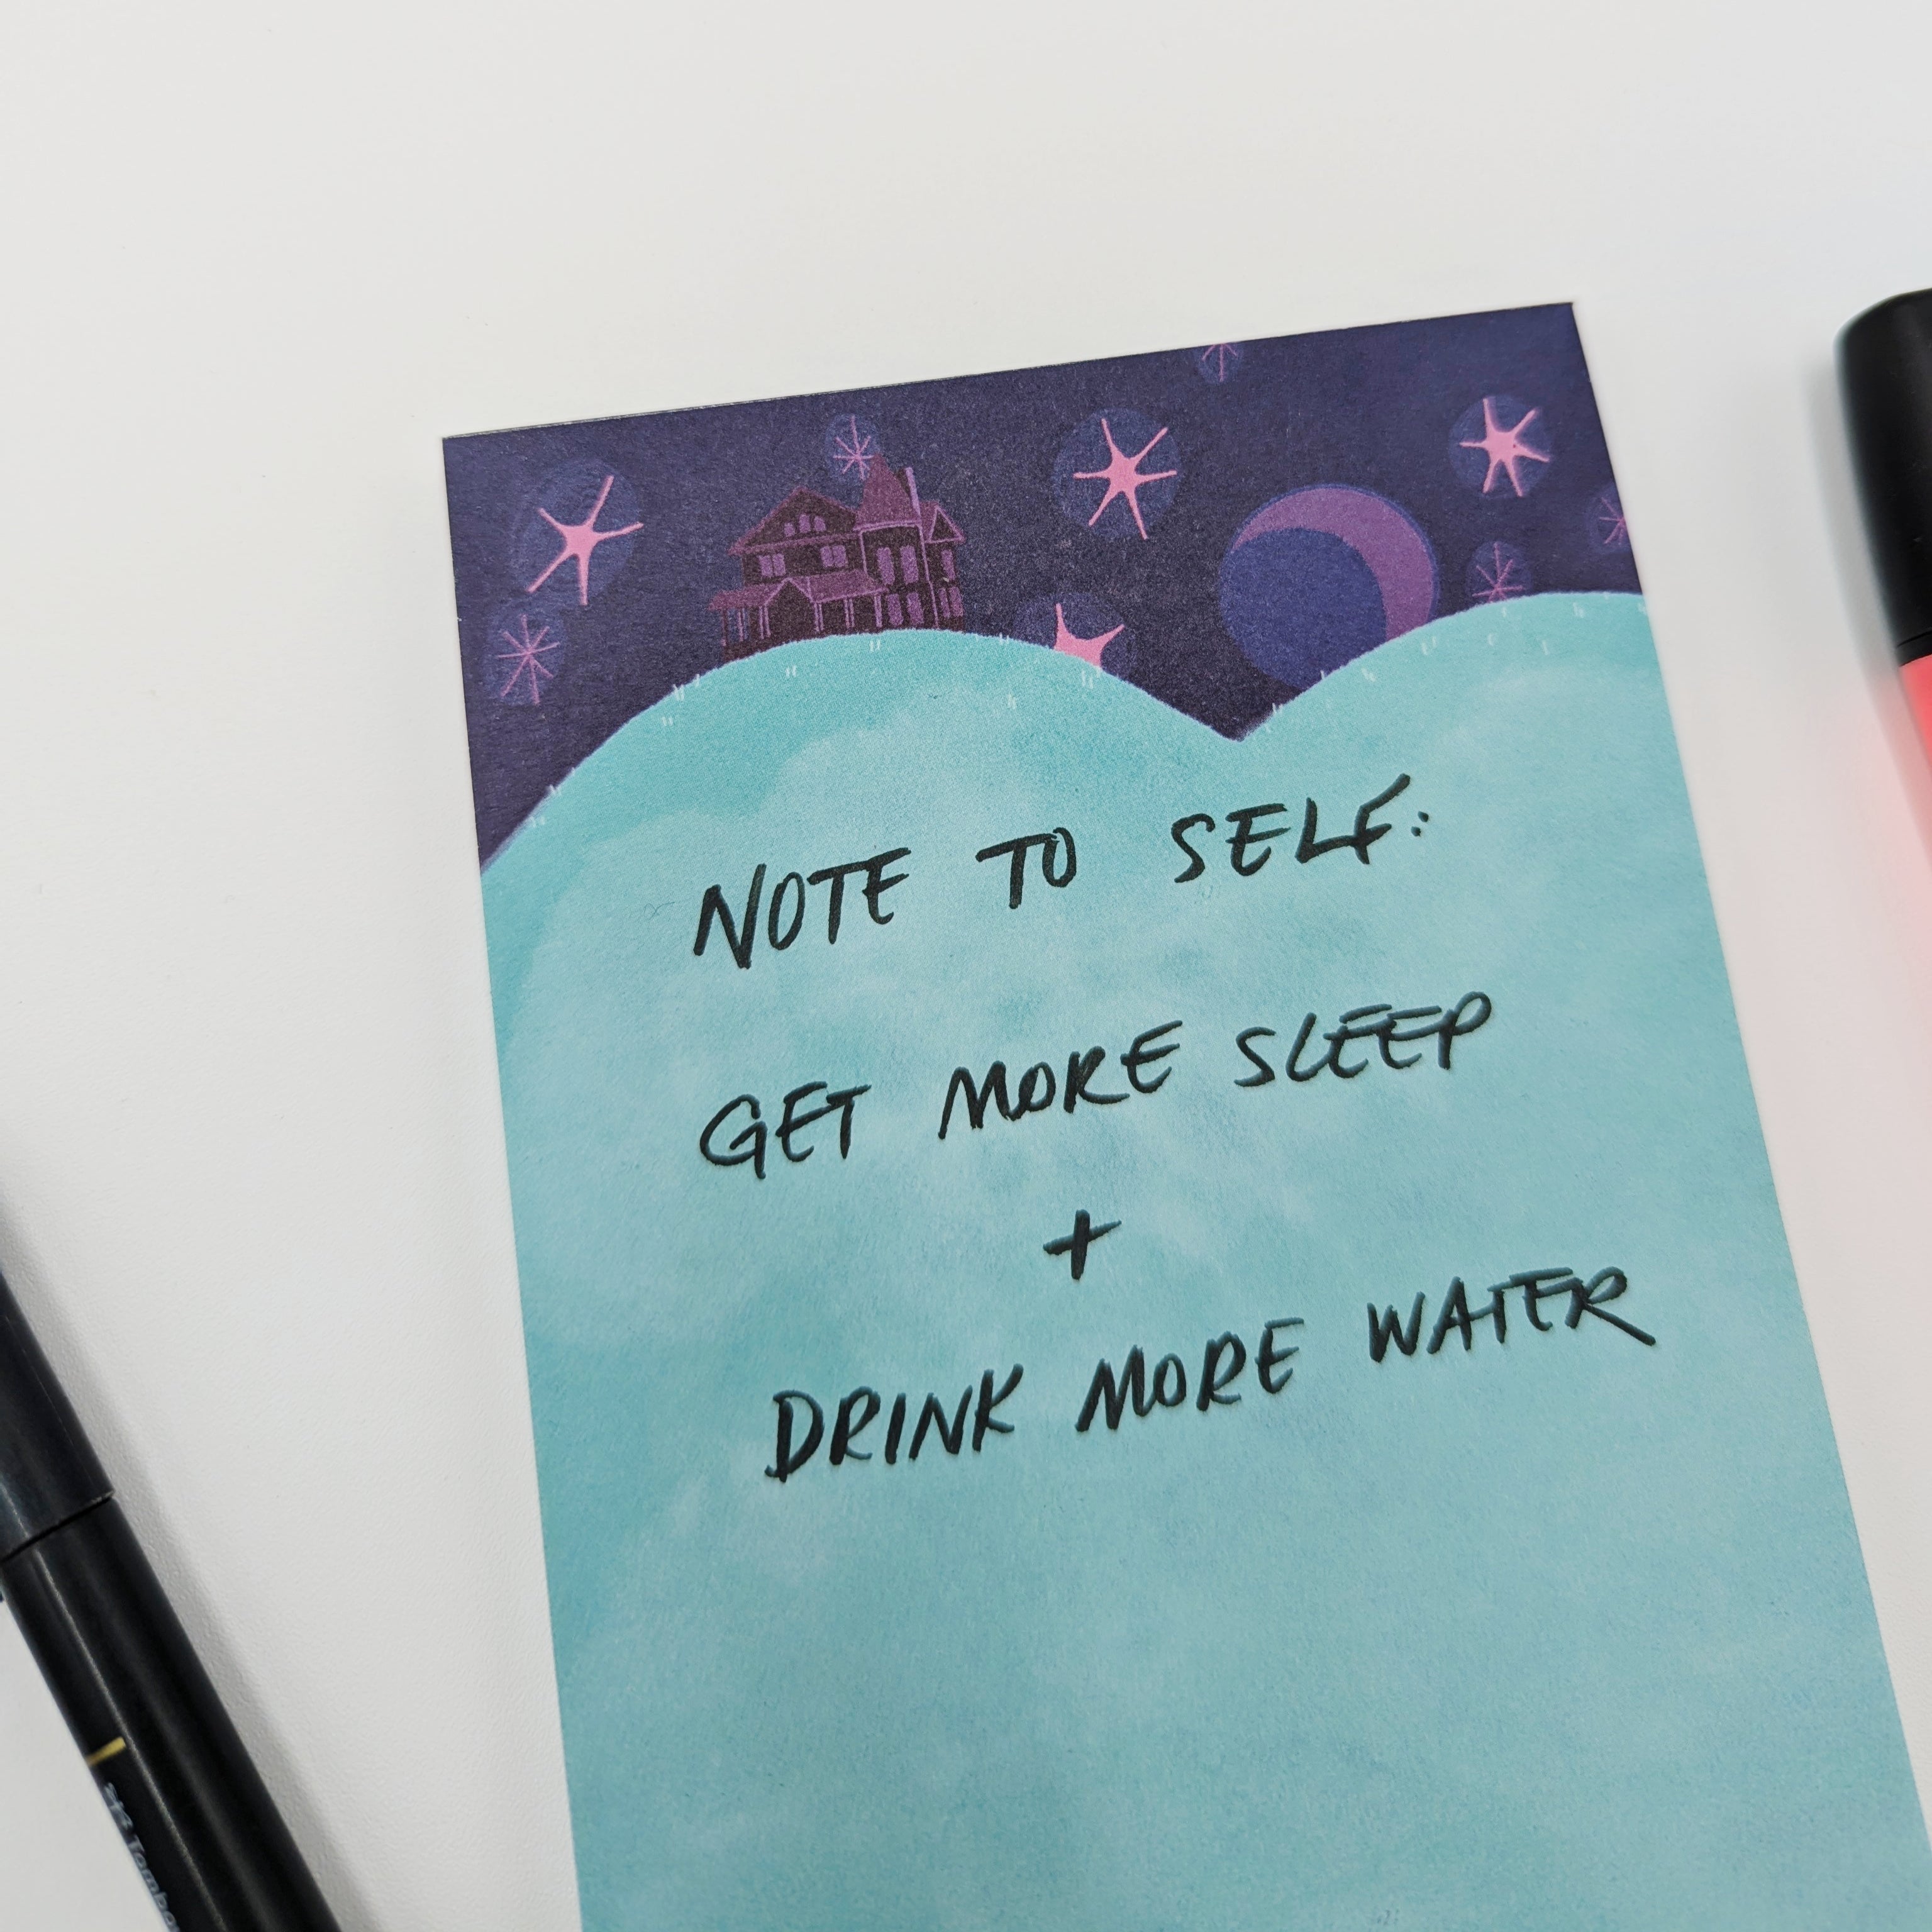 NOTE TO SELF:
GET MORE SLEEP
+
DRINK MORE WATER